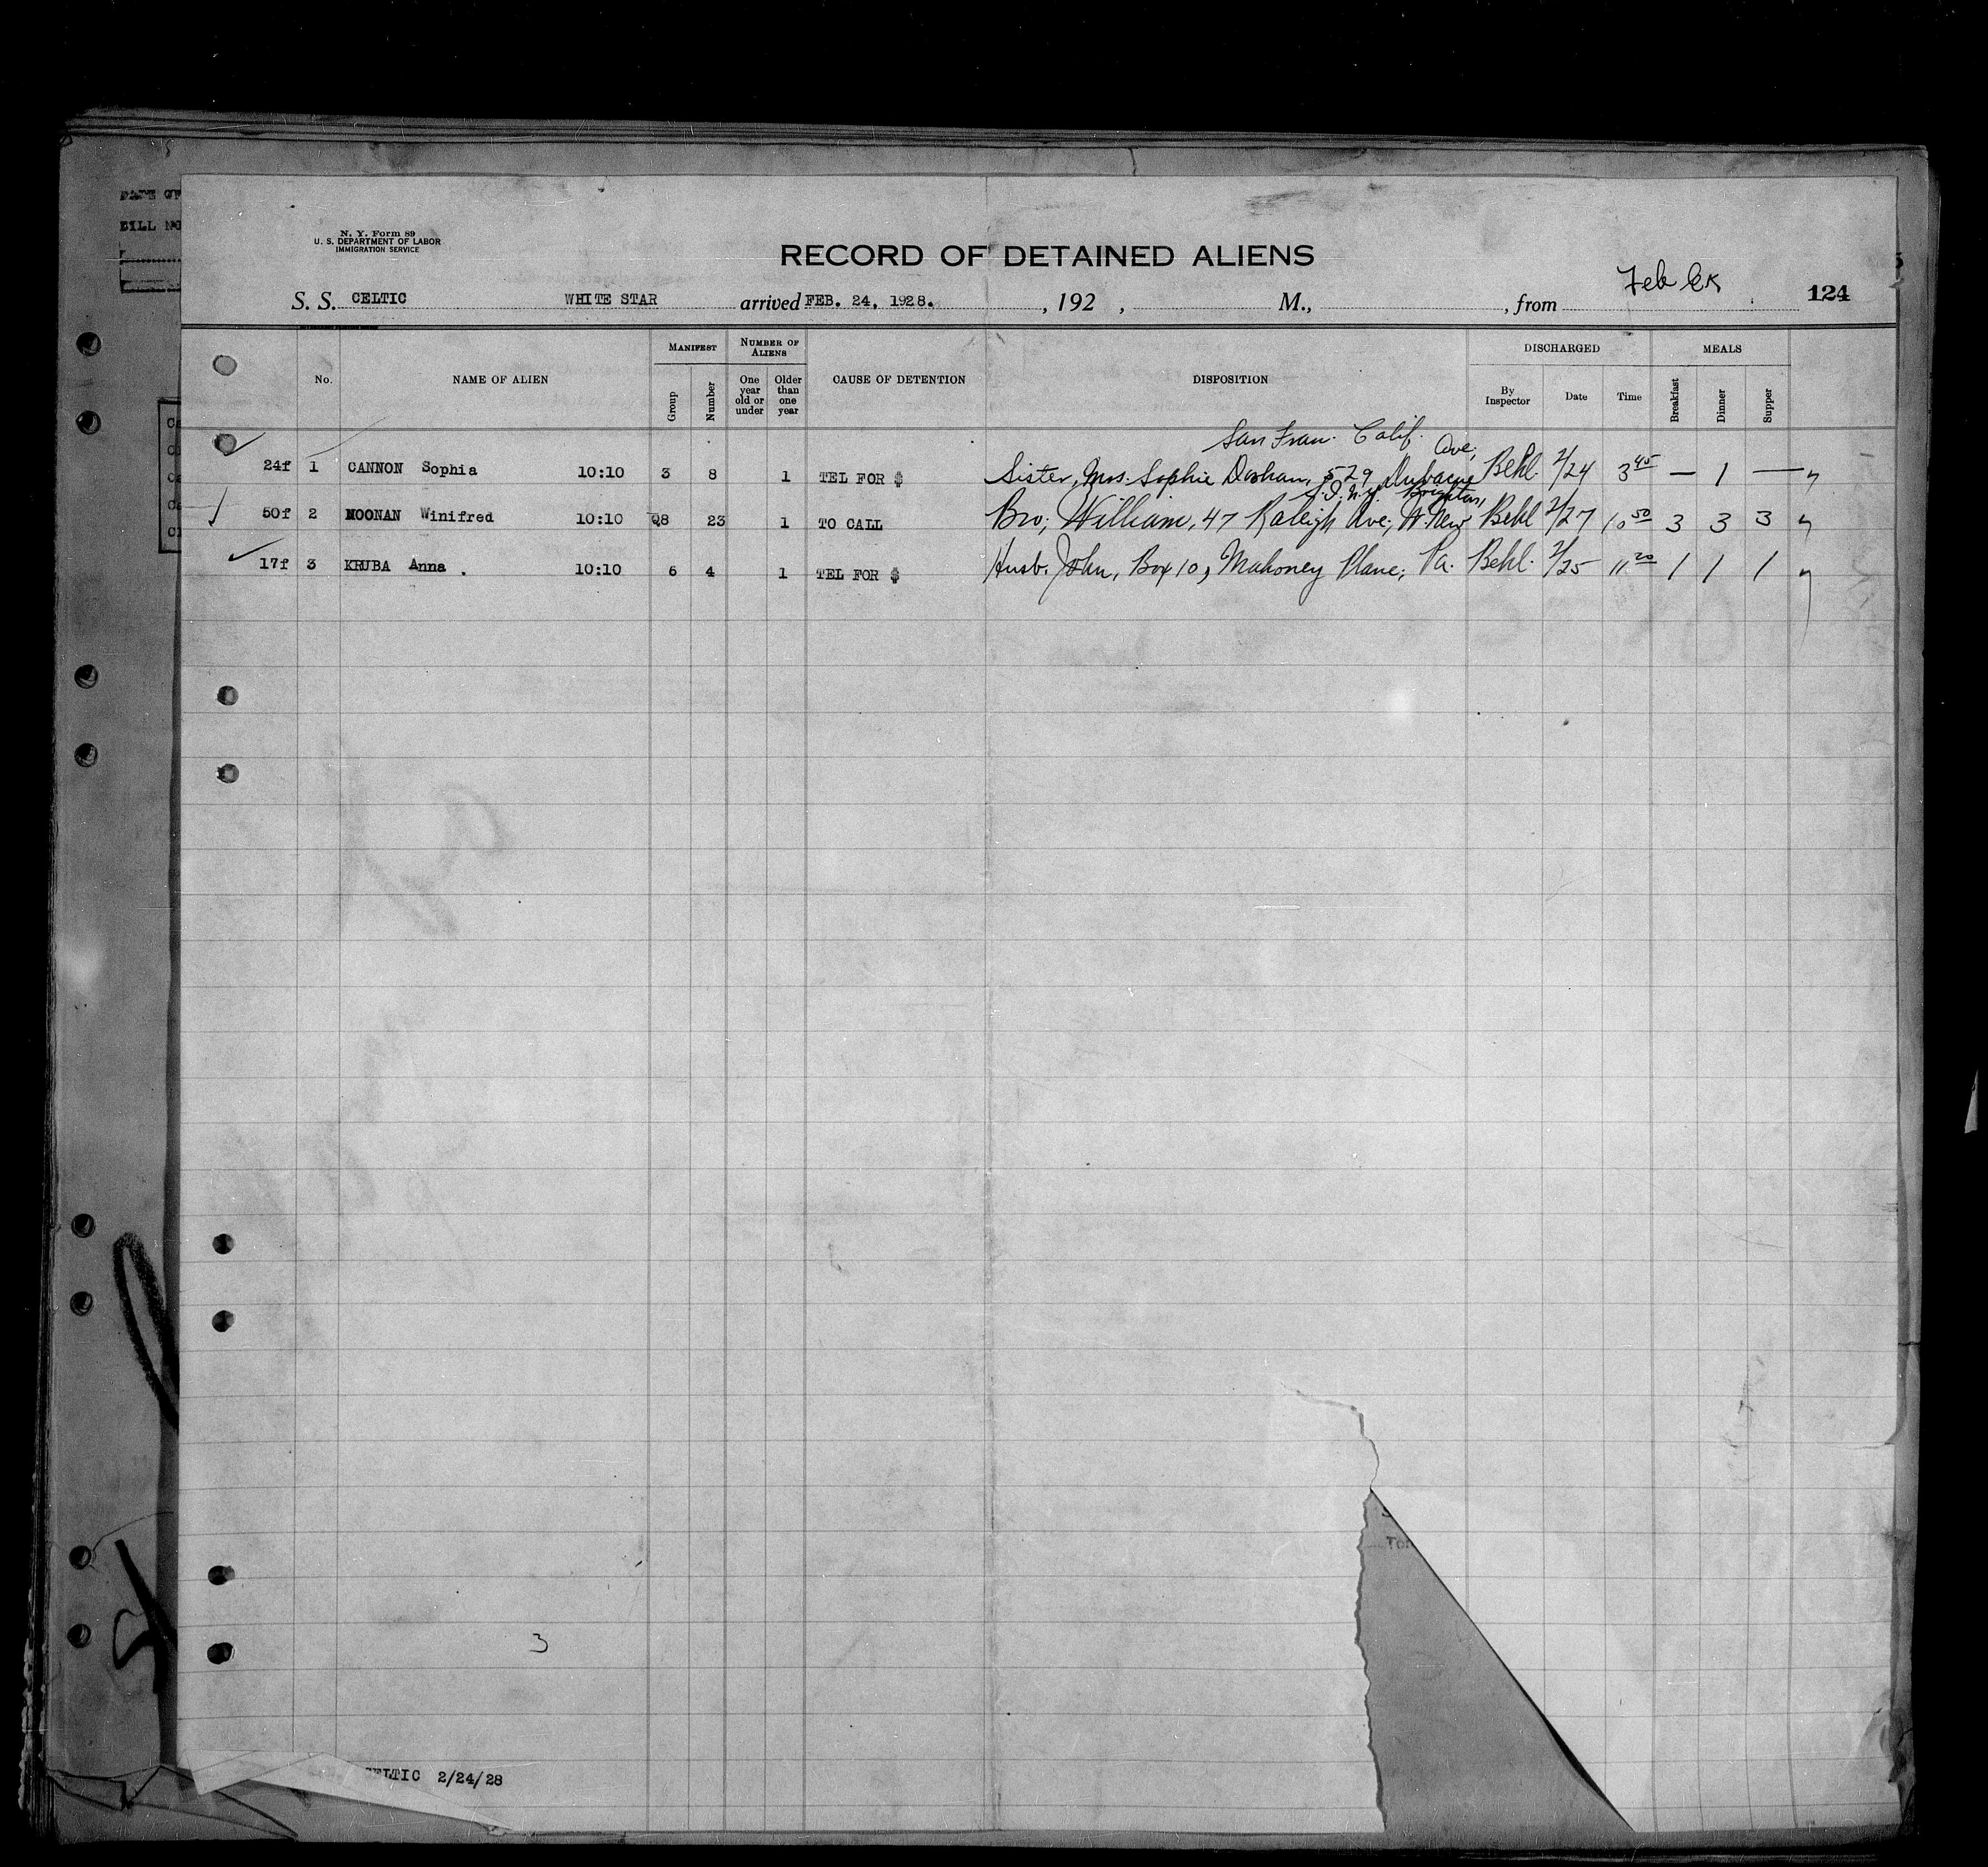 BILL NO
N. Y. Form 89
U. S. DEPARTMENT OF LABOR
IMMIGRATION SERVICE
RECORD OF DETAINED ALIENS
124
S. S. CELTIC WHITE STAR arrived FEB. 24, 1928. , 192 , M., , from
No. NAME OF ALIEN MANIFEST Group Number NUMBER OF ALIENS One year old or under Older than one year CAUSE OF DETENTION DISPOSITION DISCHARGED By Inspector Date Time MEALS Breakfast Dinner Supper
San Fran. Calif. Ave,
24f 1 CANNON Sophia 10:10 3 8 1 TEL FOR $ Sister, Mrs. Sophie 529 Behl. 2/24 3 45 — 1 —
S. I. N.Y. Brighton,
50f 2 NOONAN Winifred 10:10 Q8 23 1 TO CALL Bro; William, 47 Raleigh Ave; W. New Behl 2/27 10 50 3 3 3
17f 3 KRUBA Anna . 10:10 6 4 1 TEL FOR $ Husb. John, Box 10, Mahoney Plane; Pa. Behl. 2/25 11 20 1 1 1
3
CELTIC 2/24/28